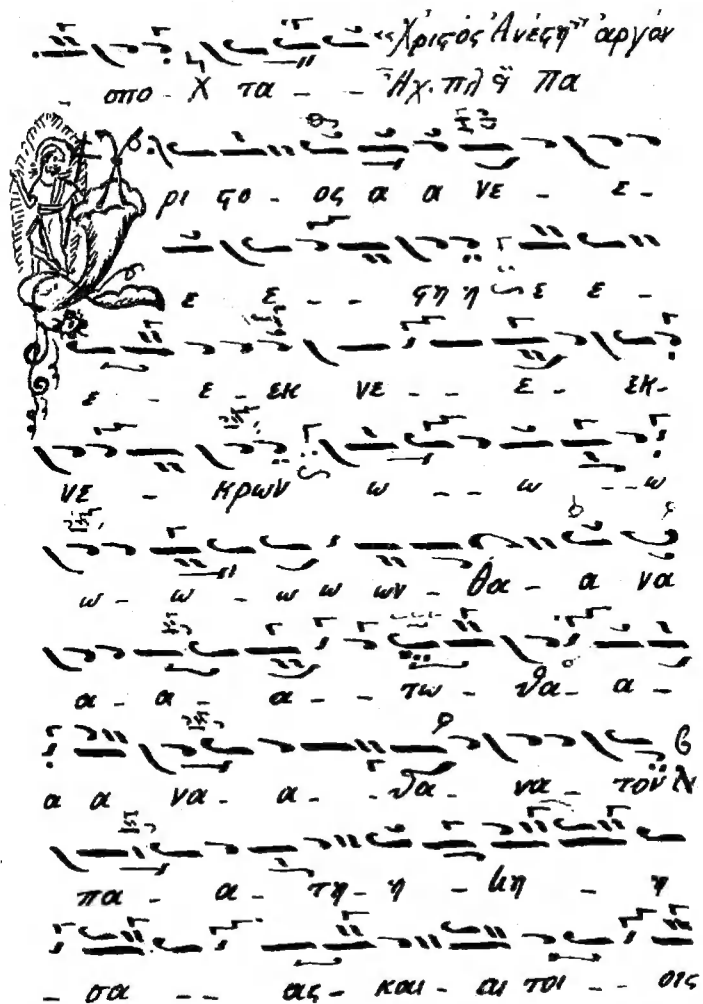 «Χριστός Ἀνέστη» ἀργόν
_ οπο - χ τα - - Ἦχ. πλ ἄ Πα
ρι ςο - ος α α νε - ε -
ε ε - - ςη η ε ε -
ε - ε - εκ νε - - ε - εκ-
νε - κρων ω - - ω - - ω
ω - ω - ω ω ων - θα - α να
α - α - α - - τω - θα - α -
α α να - α - - θα - να - τον
πα - α - τη - η - ση - η
- σα - - ας - και - αι τοι - - οις